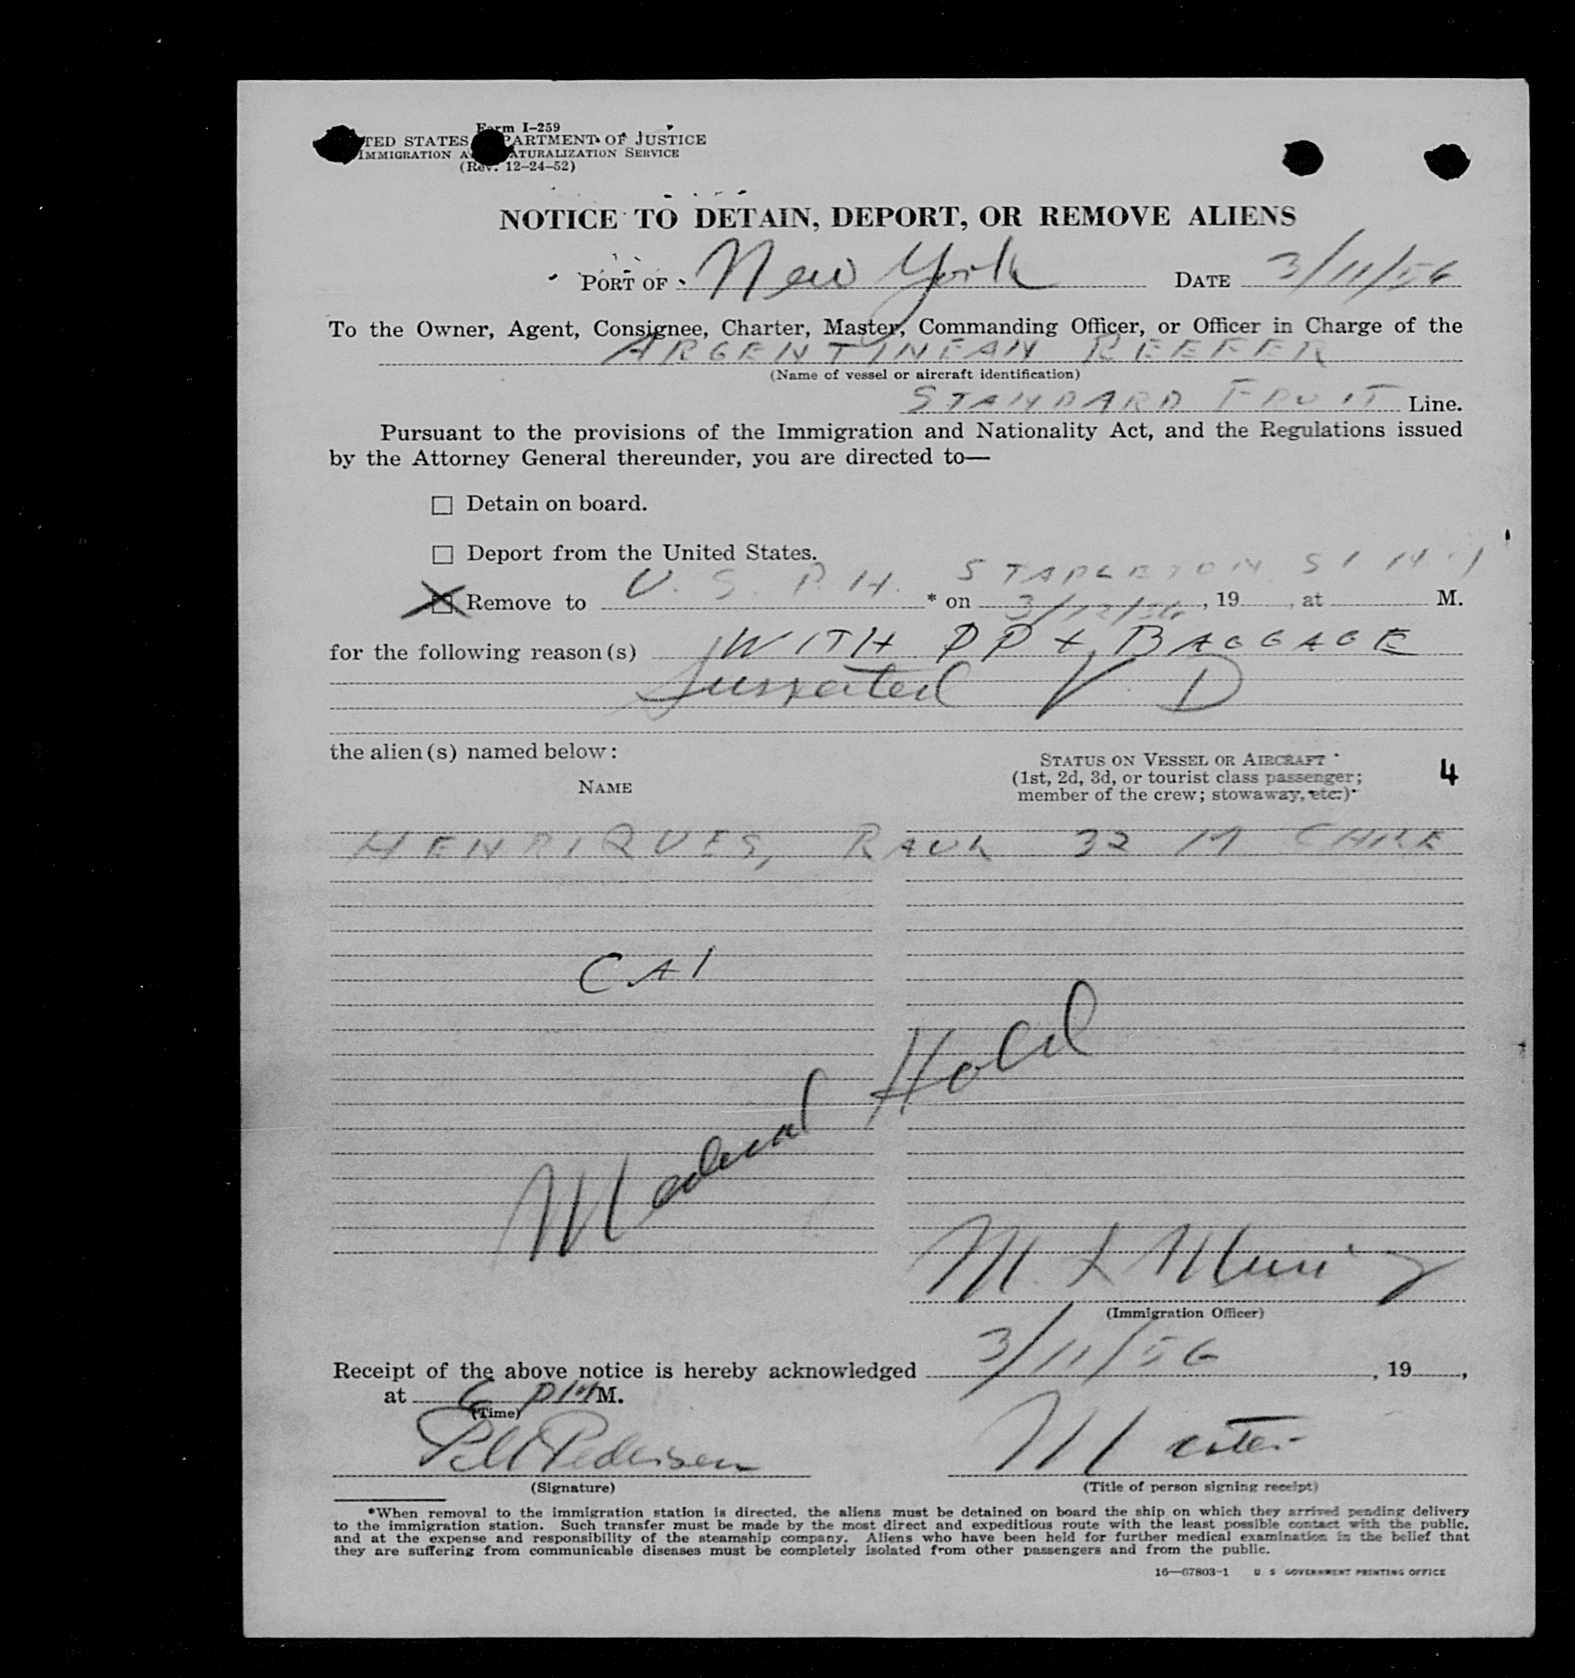 Form I-259
TED STATES PARTMENT OF JUSTICE
IMMIGRATION A ATURALIZATION SERVICE
(Rev. 12-24-52)
NOTICE TO DETAIN, DEPORT, OR REMOVE ALIENS
PORT OF New York DATE 3/11/56
To the Owner, Agent, Consignee, Charter, Master, Commanding Officer, or Officer in Charge of the
ARGENTINEAN REEFER
(Name of vessel or aircraft identification)
STANDARD FRUIT Line.
Pursuant to the provisions of the Immigration and Nationality Act, and the Regulations issued
by the Attorney General thereunder, you are directed to—
☐ Detain on board.
☐ Deport from the United States.
STAPLETON SI N.Y
☒ Remove to U. S. P. H. * on 3/12/56, 19 , at M.
for the following reason(s) WITH PP + BAGGAGE
Suspected V D
the alien(s) named below:
NAME
STATUS ON VESSEL OR AIRCRAFT
(1st, 2d, 3d, or tourist class passenger;
member of the crew; stowaway, etc.)
4
HENRIQUES, RAUL 32 M
CAI
Medical Hold
M.
(Immigration Officer)
Receipt of the above notice is hereby acknowledged 3/11/56, 19 ,
at 6 PM M.
(Time)
Pedersen
Master
(Signature)
(Title of person signing receipt)
*When removal to the immigration station is directed, the aliens must be detained on board the ship on which they arrived pending delivery
to the immigration station. Such transfer must be made by the most direct and expeditious route with the least possible contact with the public,
and at the expense and responsibility of the steamship company. Aliens who have been held for further medical examination in the belief that
they are suffering from communicable diseases must be completely isolated from other passengers and from the public.
16—67803-1 U S GOVERNMENT PRINTING OFFICE